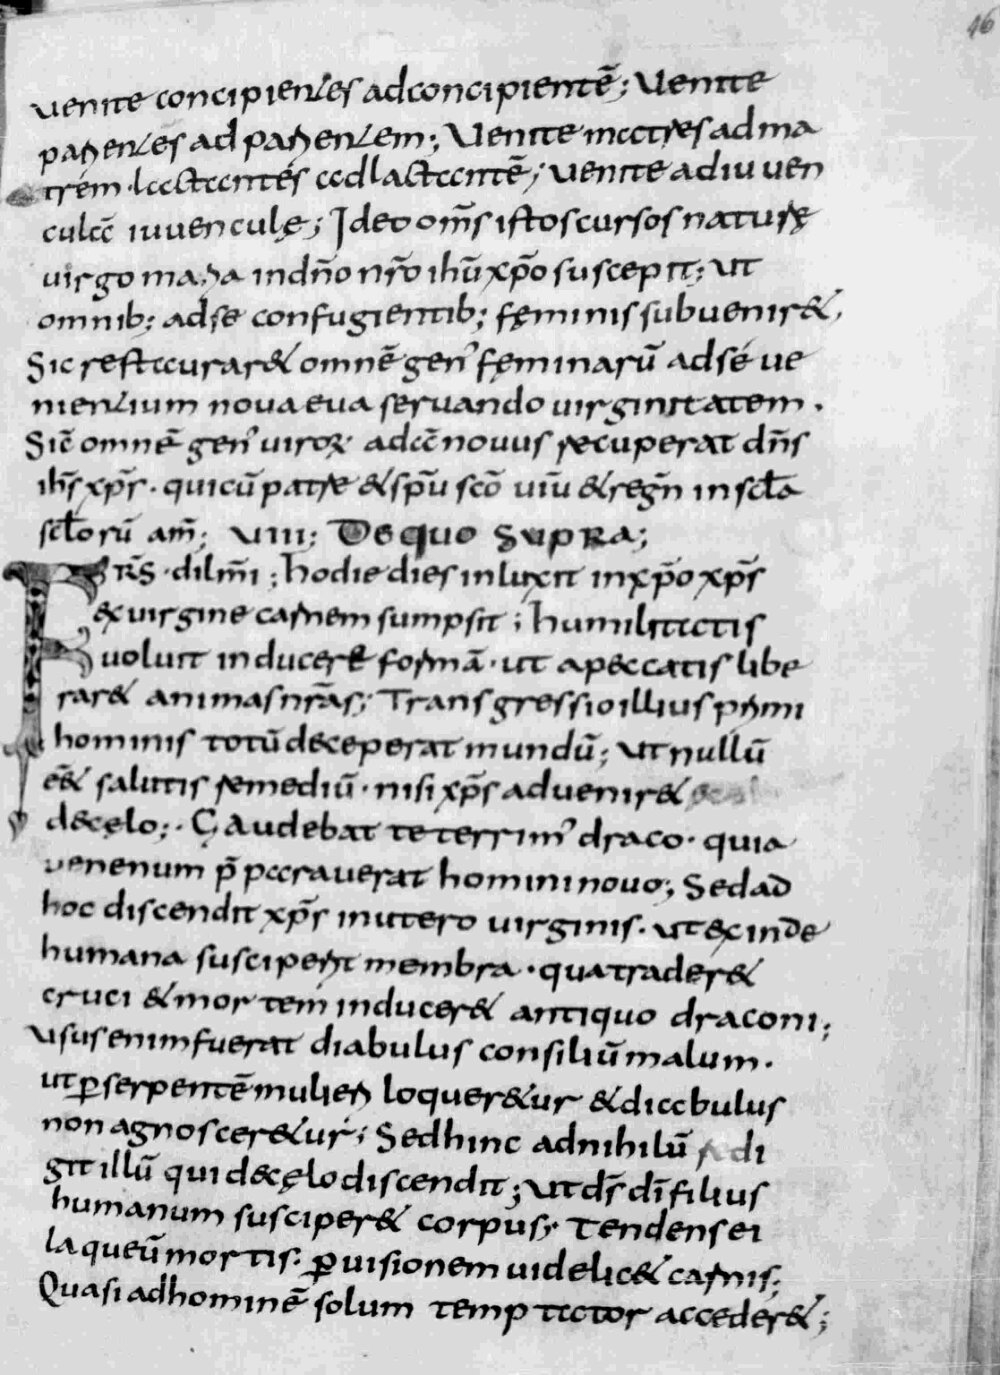 46
uenite concipientes adconcipientē; Uenite
parientes ad parientem; Uenite matres ad ma
trem · lactantes ad lactantē; uenite ad iuuen
culā iuuenculę; Ideo om̄s istos cursos naturę
uirgo maria in dño nr̄o ihū xp̄o suscepit; ut
omnib; ad se confugientib; fęminis subuenir&,
Sic restaurar& omnē gen' fęminarū ad sé ue
nientium noua eua seruando uirginitatem .
Sić omnē gen' uiroꝝ adā nouus recuperat dn̄s
ihs̄ xp̄s · qui cū patre & sp̄u sc̄o uiū & regn̄ in scl̄a
scl̄orū am̄; uiii; De quo supra;
Fr̄s · dilm̄i; hodie dies inluxit in xp̄o xp̄s
ex uirgine carnem sumpsit; humilitatis
uoluit inducere formā · ut a peccatis libe
rar& animas nr̄as; Transgressio illius primi
hominis totū deceperat mundū; ut nullū
ēē& salutis remediū · nisi xp̄s aduenir&
de cęlo; · Gaudebat teterrim' draco · quia
uenenum p̄parauerat homini nouo; Sed ad
hoc discendit xp̄s in utero uirginis · ut exinde
humana susciperit membra · qua trader&
cruci & mortem inducer& antiquo draconi;
Usus enim fuerat diabulus consiliū malum .
ut ꝑ serpentē mulieri loquer&ur & diabulus
non agnoscer&ur; Sed hinc adnihilū redi
git illū qui de cęlo discendit; ut ds̄ dī filius
humanum susciper& corpus; Tendens ei
laqueū mortis · ꝑ uisionem uidelic& carnis;
Quasi ad hominē solum temptator acceder&;